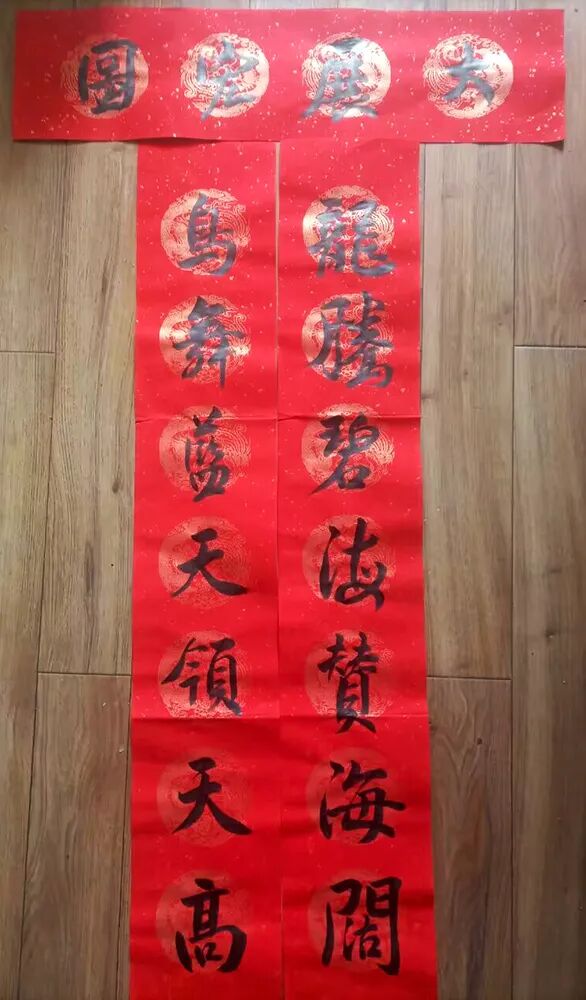 大展宏圖
龍騰碧海賛海闊
鳥舞藍天領天高